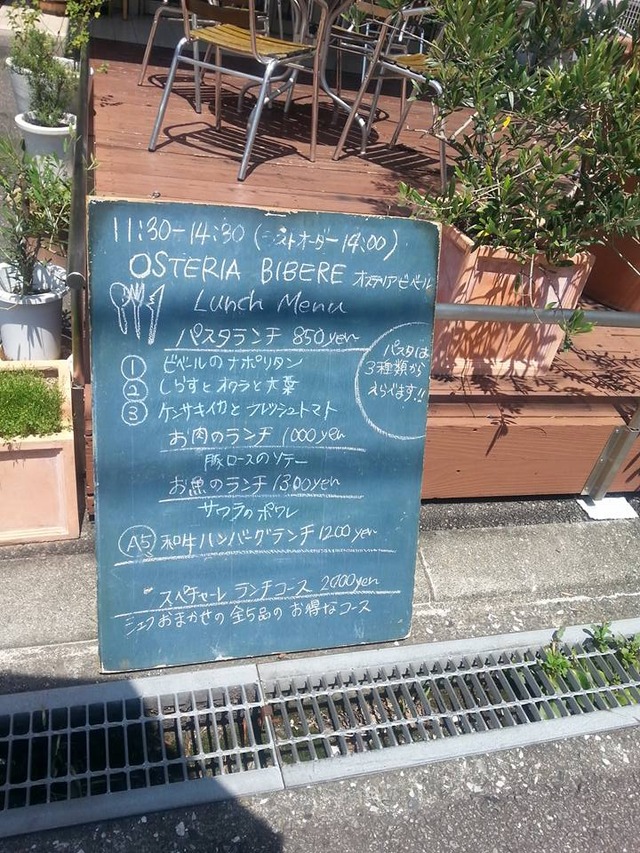 11:30-14:30 (ラストオーダー 14:00)
OSTERIA BIBERE オステリア・ビベール
Lunch Menu
パスタランチ 850yen
パスタは
3種類から
えらべます!!
① ビベールのナポリタン
② しらすとオクラと大葉
③ ケンサキイカとフレッシュトマト
お肉のランチ 1000yen
豚ロースのソテー
お魚のランチ 1300yen
サワラのポワレ
A5 和牛ハンバーグランチ 1200yen
スペチャーレ ランチコース 2000yen
シェフおまかせの全5品の お得なコース